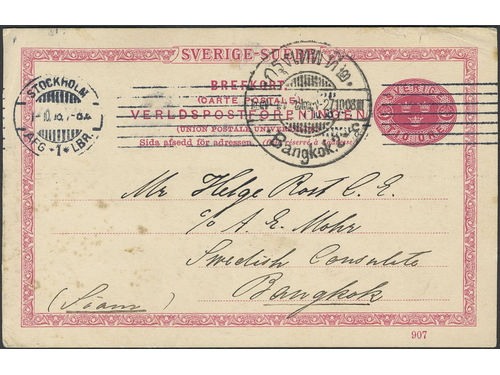 SVERIGE-SUÈDE.
BREFKORT
(CARTE POSTALE)
VERLDSPOSTFÖRENINGEN
(UNION POSTALE UNIVERSELLE)
Sida afsedd för adressen. (Côté réservé à l'adresse)
SVERIGE
TIO ÖRE
STOCKHOLM
AFG 1 LBR.
Bangkok
Mr Helge Rost C. E.
c/o A. E. Mohr
Swedish Consulate
Bangkok
(Siam)
907